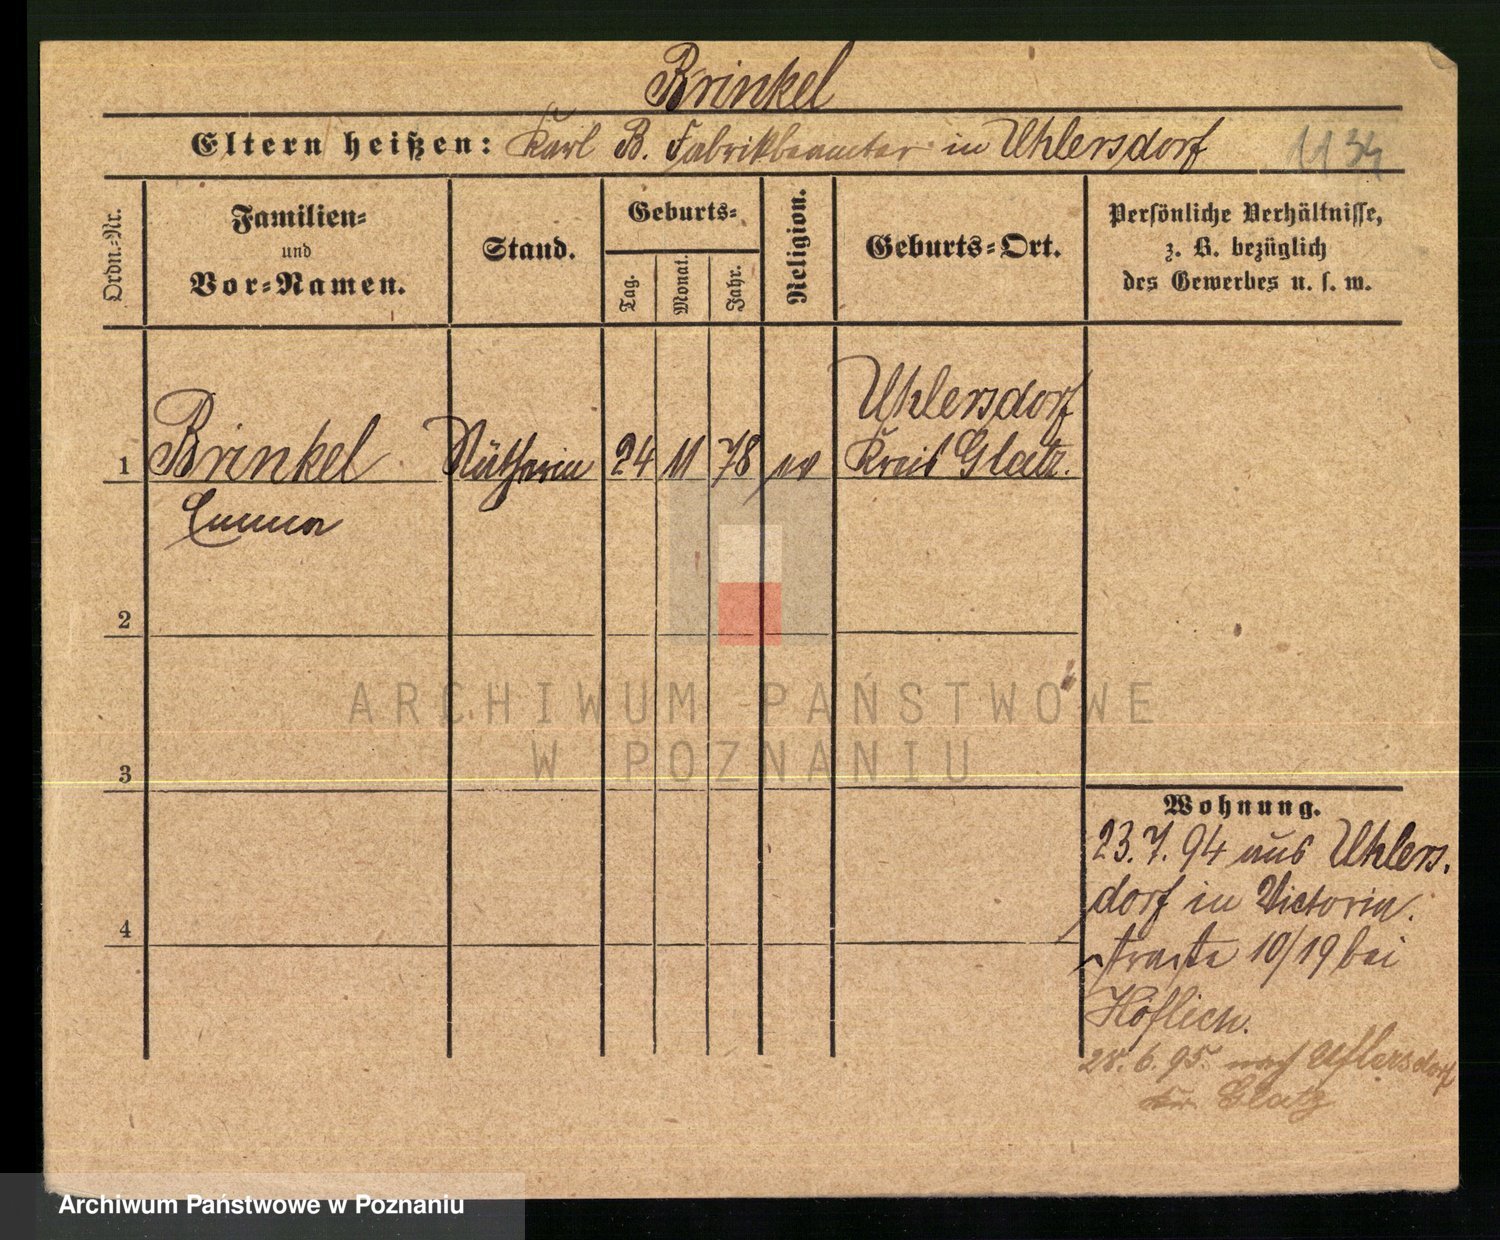 Brinkel
Eltern heißen: Karl B. Fabrikbeamter in Uhlersdorf
1134
Ordn.-Nr.
Familien-
und
Vor-Namen.
Stand.
Geburts-
Tag.
Monat.
Jahr.
Religion.
Geburts-Ort.
Persönliche Verhältnisse,
z. B. bezüglich
des Gewerbes u. s. w.
1 Brinkel Nätherin 24 11 78 ev Uhlersdorf
Kreis Glatz.
Emma
2
3
4
Wohnung.
23.7.94 aus Uhlers-
dorf in Victoria-
straße 10/19 bei
Höflich.
28.6.95 nach Uhlersdorf
Glatz
ARCHIWUM PAŃSTWOWE
W POZNANIU
Archiwum Państwowe w Poznaniu